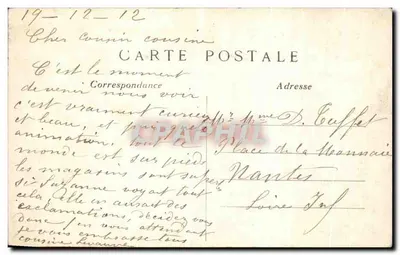 19-12-12
Cher cousin cousine
CARTE POSTALE
C'est le moment
Correspondance
Adresse
de venir nous voir
c'est vraiment curieux
et beau, et puis
animation, tout le
monde est sur pied
les magasins sont superbes
si Suzanne voyait tout
cela elle en aurait des
exclamations, décidez vous
donc, en vous attendant
je vous embrasse tous
cousine
Mr Mme D. Tuffet
Place de la Monnaie
Nantes
Loire Inf